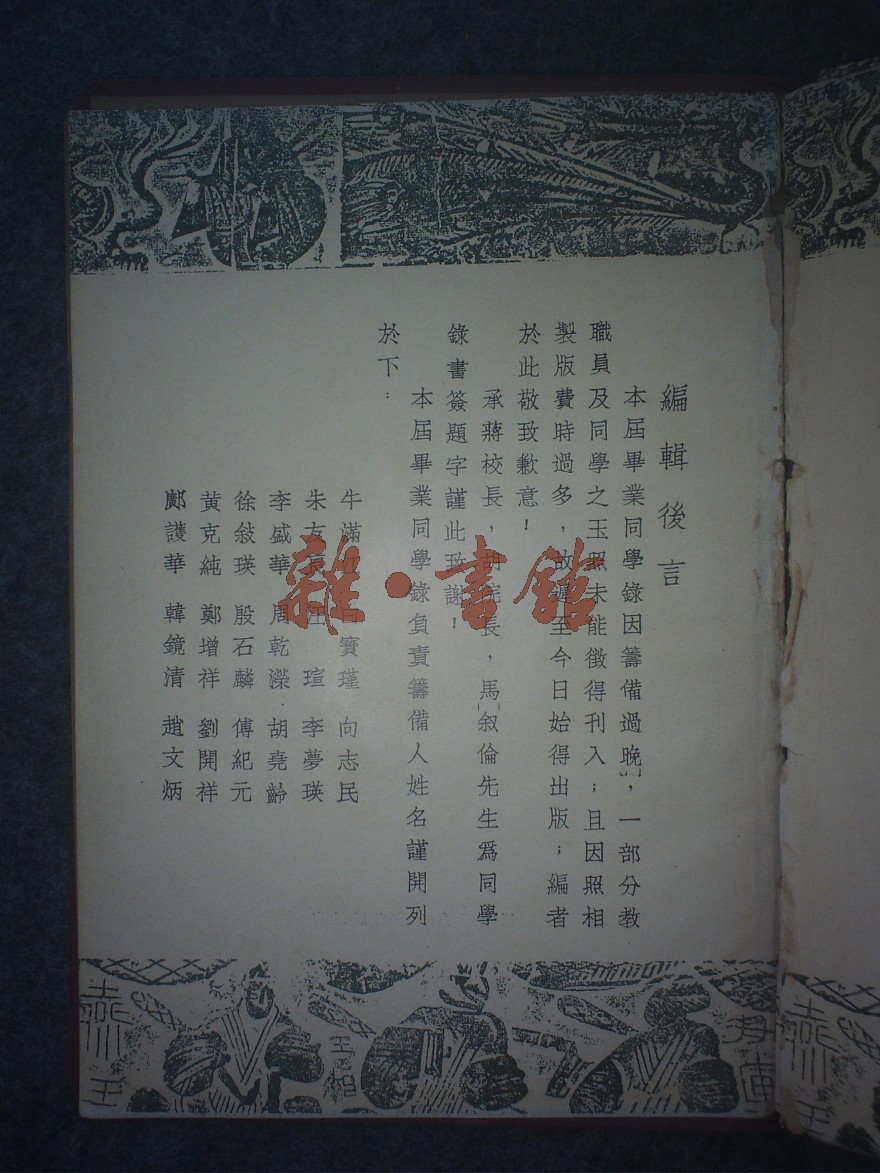 編輯後言
本屆畢業同學錄因籌備過晚，一部分教
職員及同學之玉照未能徵得刊入；且因照相
製版費時過多，故遲至今日始得出版；編者
於此敬致歉意！
承蔣校長，胡院長，馬叙倫先生為同學
錄書簽題字謹此致謝！
本屆畢業同學錄負責籌備人姓名謹開列
於下：
牛滿 寶瑾 向志民
朱友長 汪瑄 李夢瑛
李盛華 周乾濚 胡堯齡
徐敍瑛 殷石麟 傅紀元
黃克純 鄭增祥 劉開祥
鄺護華 韓鏡清 趙文炳
雜·書館
王